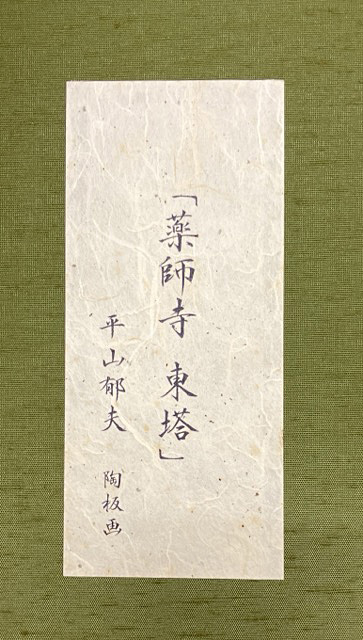 「薬師寺 東塔」
平山郁夫 陶板画